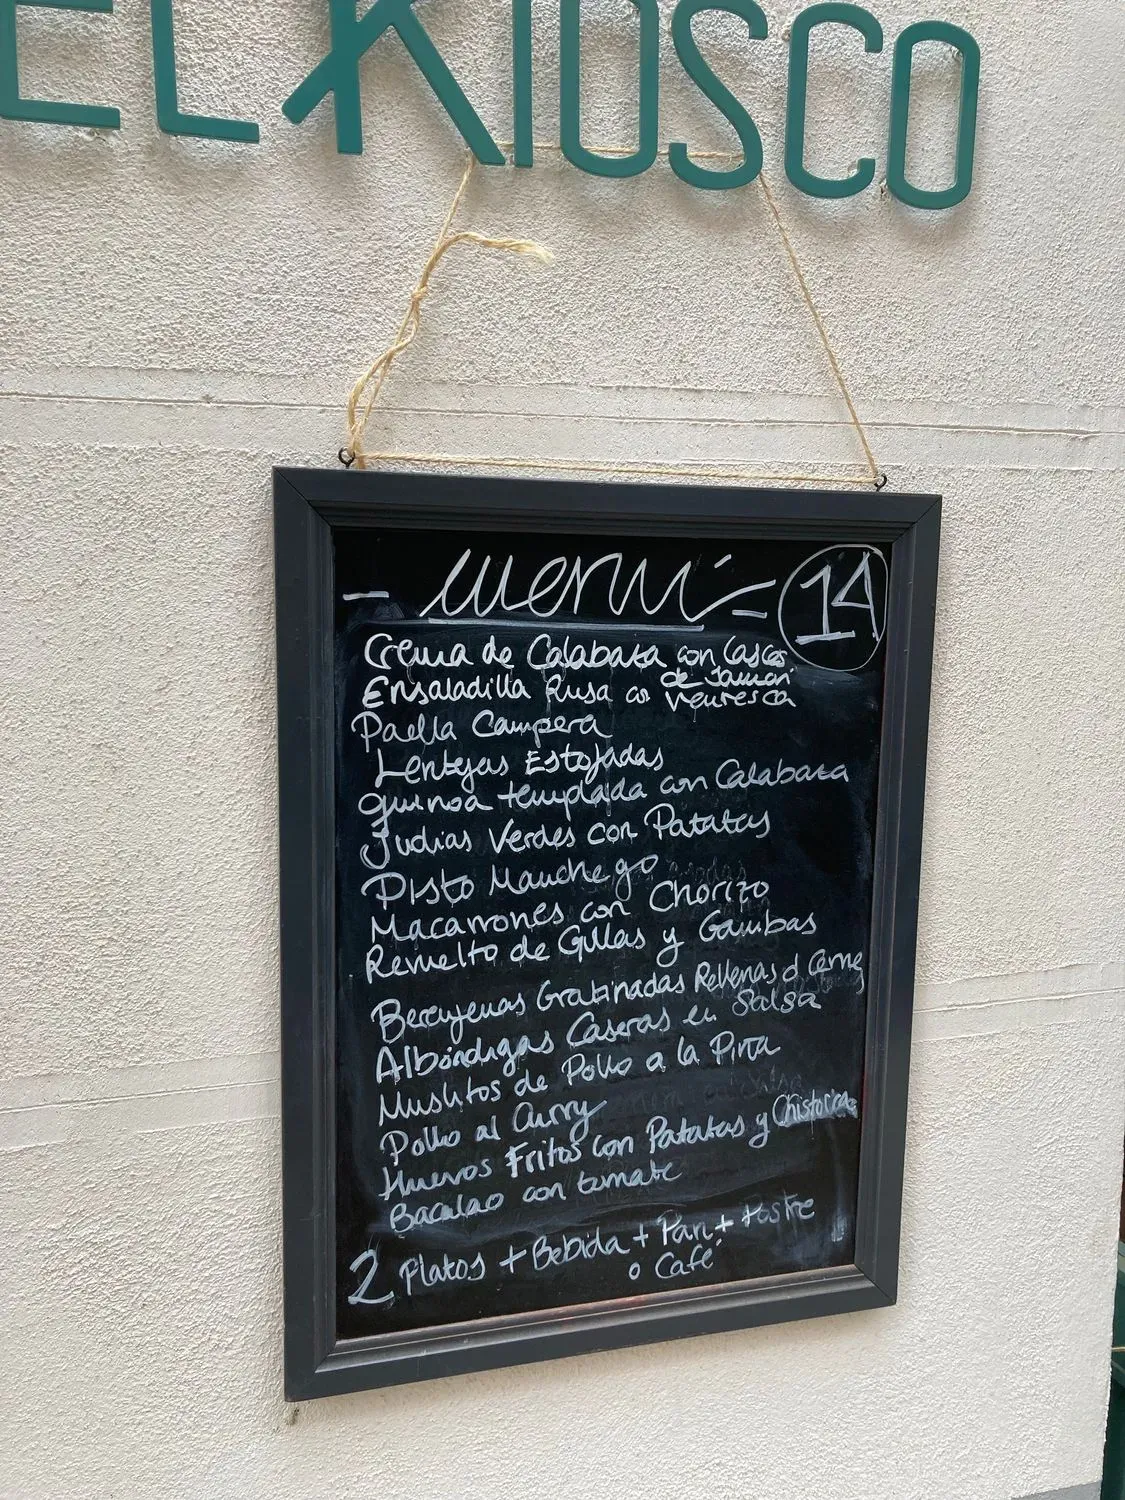 EL KIOSCO
- Menú - 14
Crema de Calabaza con Cascos
de Jamón
Ensaladilla Rusa con Ventresca
Paella Campera
Lentejas Estofadas
Quinoa templada con Calabaza
Judias Verdes con Patatas
Pisto Manchego
Macarrones con Chorizo
Revuelto de Gulas y Gambas
Berenjenas Gratinadas Rellenas d Carne
Albóndigas Caseras en Salsa
Muslitos de Pollo a la
Pollo al Curry
Huevos Fritos con Patatas y Chistorra
Bacalao con tomate
2 Platos + Bebida + Pan + Postre
o Café